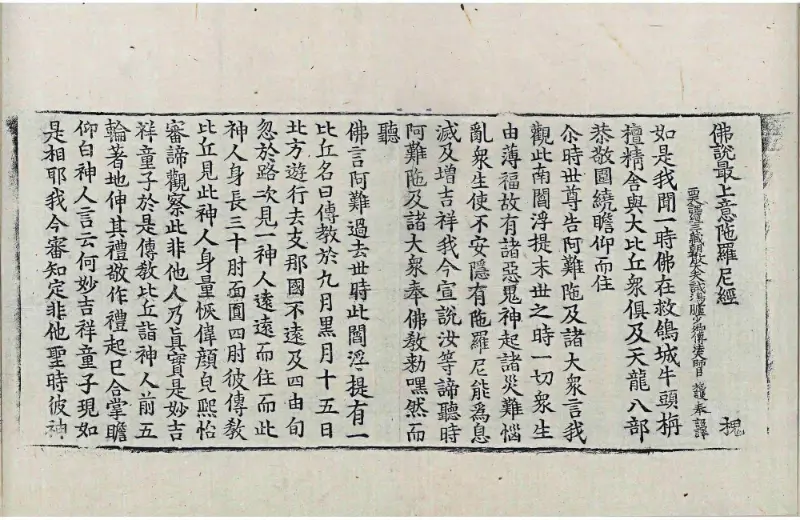 佛說最上意陀羅尼經
槐
如是我聞一時佛在救鴿城牛頭栴
檀精舍與大比丘衆俱及天龍八部
恭敬圍繞瞻仰而住
尒時世尊告阿難陁及諸大衆言我
觀此南閻浮提末世之時一切衆生
由薄福故有諸惡鬼神起諸災難惱
亂衆生使不安隱有陁羅尼能爲息
滅及増吉祥我今宣說汝等諦聽時
阿難陁及諸大衆奉佛教勑嘿然而
聽
佛言阿難過去世時此閻浮提有一
比丘名曰傳教於九月黒月十五日
北方遊行去支那國不遠及四由旬
忽於路次見一神人遠遠而住而此
神人身長三十肘面圓四肘彼傳教
比丘見此神人身量恢偉顔皃熙怡
審諦觀察此非他人乃眞實是妙吉
祥童子於是傳教比丘詣神人前五
輪著地伸其禮敬作禮起已合掌瞻
仰白神人言云何妙吉祥童子現如
是相耶我今審知定非他聖時彼神